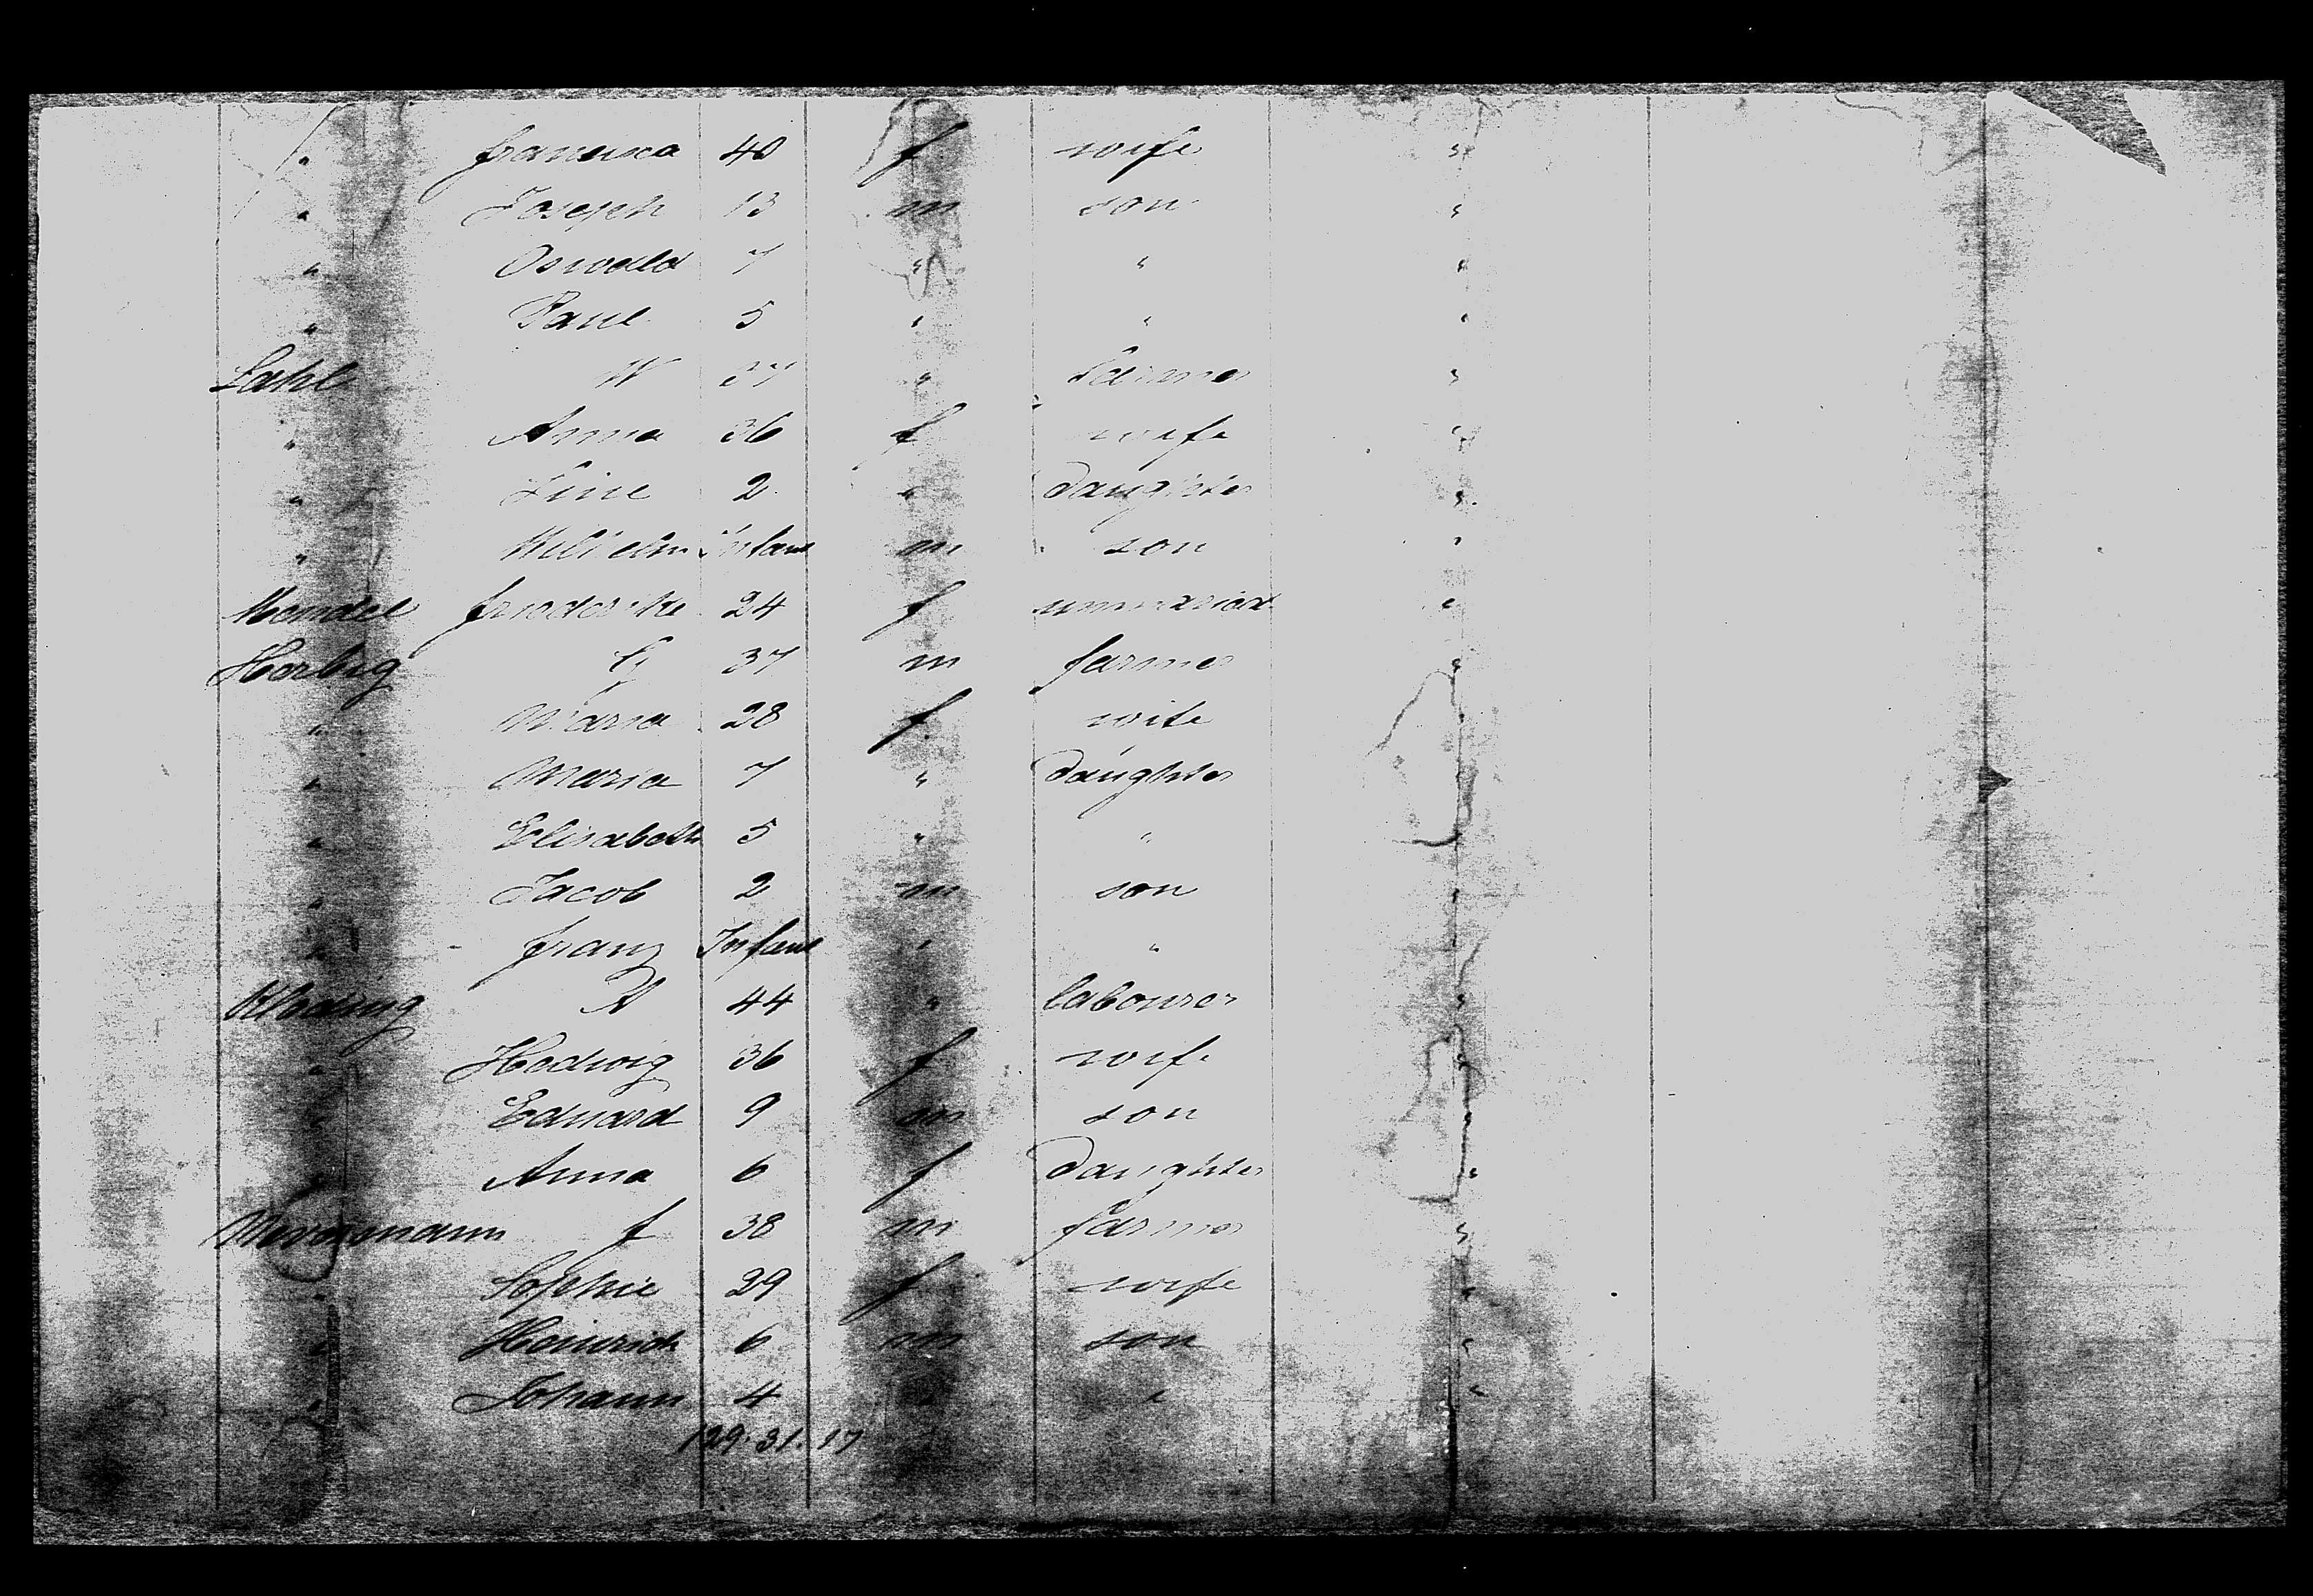 " Francisca 40 f wife "
" Joseph 13 m son "
" Oswald 7 " " "
" Paul 5 " " "
Lahl W 37 " Farmer "
" Anna 36 f wife "
" Line 2 " daughter "
" Wilhelm Infant m son "
Mendel Frederike 24 f unmaried "
Herbig G 37 m farmer "
" Maria 28 f wife "
" Maria 7 " daughter "
" Elisabeth 5 " " "
" Jacob 2 m son "
" Franz Infant " "
A 44 " labourer "
" Hedwig 36 f wife "
" Eduard 9 m son "
" Anna 6 f daughter "
f 38 m farmer "
" Sophie 29 f wife "
" Heinrich 6 m son "
" Johann 4 " " "
129. 31. 17